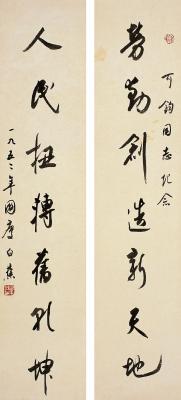 可鈞同志紀念
勞動創造新天地
人民扭轉舊乾坤
一九五二年國慶白蕉